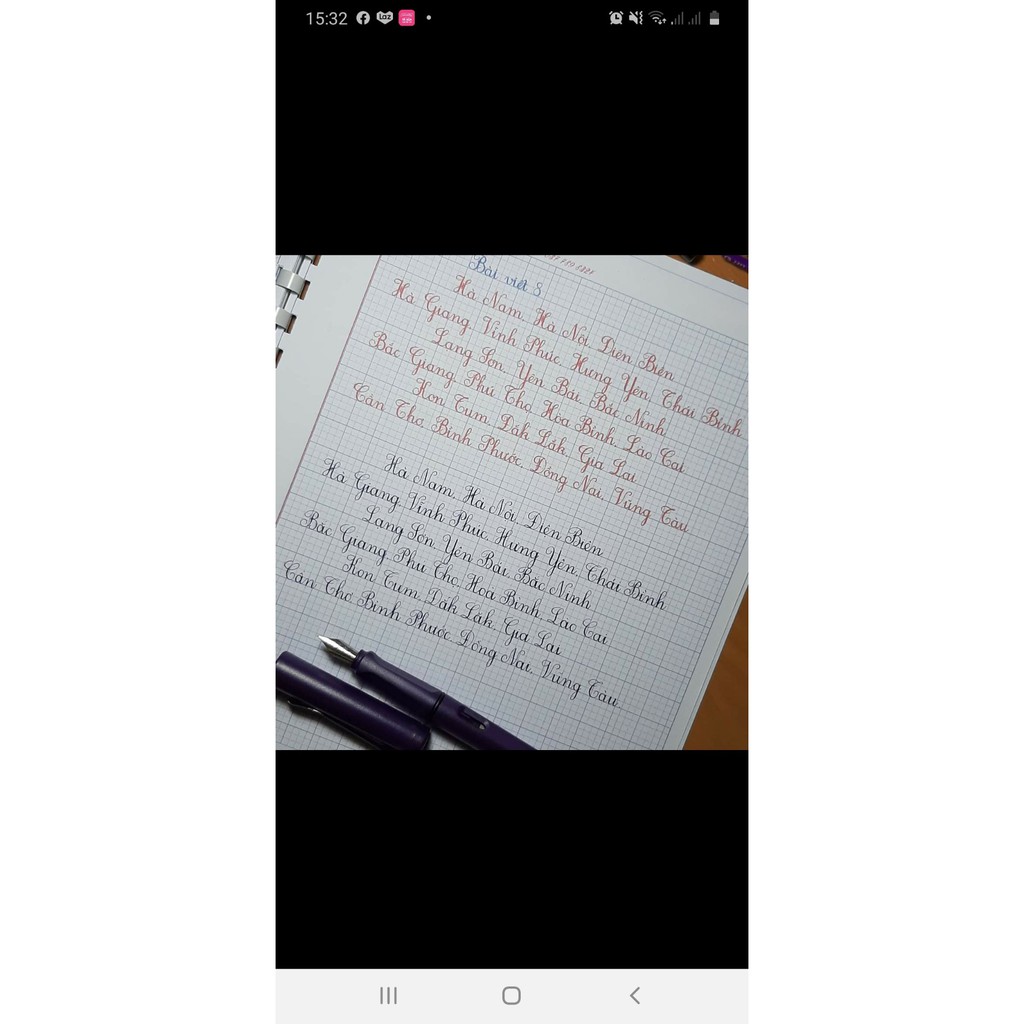 15:32
Bài viết 8
Hà Nam, Hà Nội, Điện Biên
Hà Giang, Vĩnh Phúc, Hưng Yên, Thái Bình
Lạng Sơn, Yên Bái, Bắc Ninh
Bắc Giang, Phú Thọ, Hòa Bình, Lào Cai
Kon Tum, Đắk Lắk, Gia Lai
Cần Thơ, Bình Phước, Đồng Nai, Vũng Tàu
Hà Nam, Hà Nội, Điện Biên
Hà Giang, Vĩnh Phúc, Hưng Yên, Thái Bình
Lạng Sơn, Yên Bái, Bắc Ninh
Bắc Giang, Phú Thọ, Hoà Bình, Lào Cai
Kon Tum, Đắk Lắk, Gia Lai
Cần Thơ, Bình Phước, Đồng Nai, Vũng Tàu